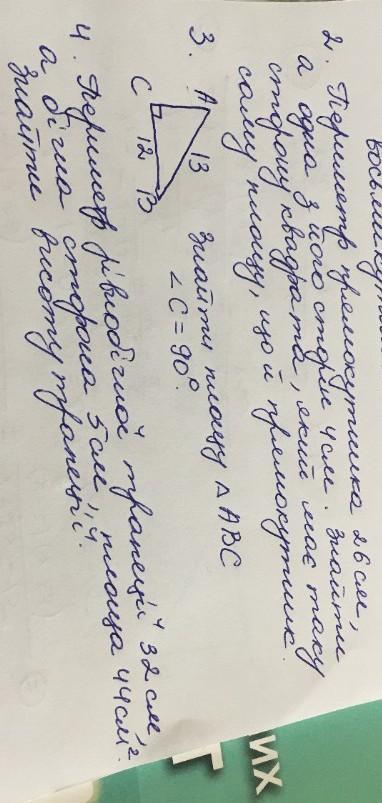 2. Периметр прямокутника 26 см,
а одна з його сторін 4 см. Знайти
сторону квадрата, який має таку
саму площу, що й прямокутник.
3. A 13 C 12 B Знайти площу △ ABC
∠C = 90°.
4. Периметр рівнобічної трапеції 32 см,
а бічна сторона 5 см, площа 44 см².
Знайти висоту трапеції.
Г
их